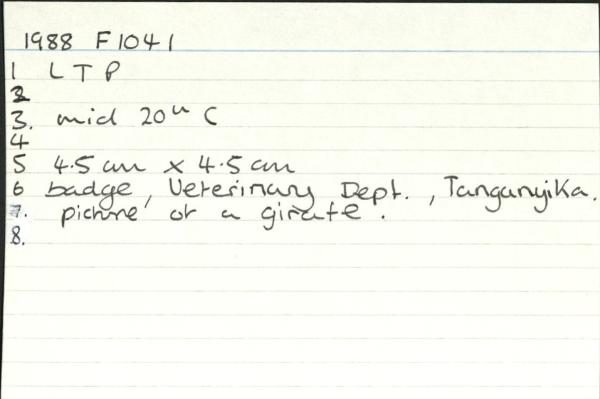 1988 F1041
1 L T P
2
3. mid 20th C
4
5 4.5 cm x 4.5 cm
6 badge, Veterinary Dept., Tanganyika.
7. picture of a girafe.
8.